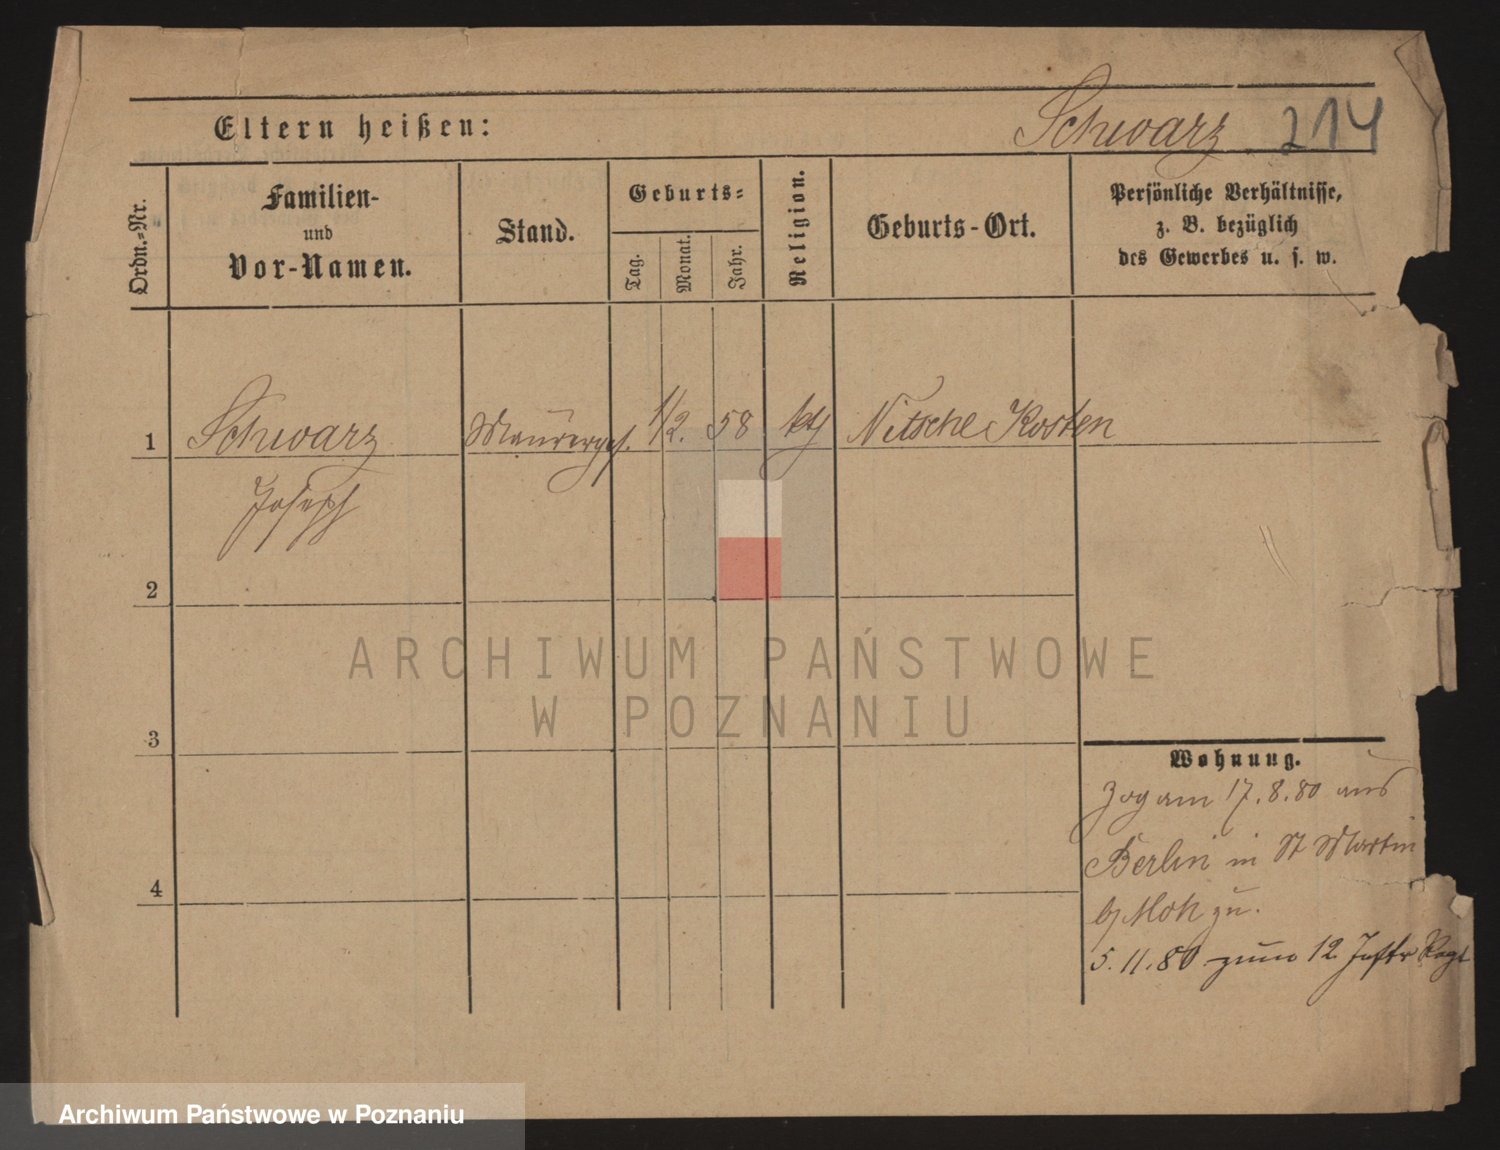 Eltern heißen:
Schwarz. 214
Ordn.-Nr.
Familien-
und
Vor-Namen.
Stand.
Geburts-
Tag.
Monat.
Jahr.
Religion.
Geburts-Ort.
Persönliche Verhältnisse,
z. B. bezüglich
des Gewerbes u. s. w.
1 Schwarz Maurerges. 1/2. 58 kth Nitsche Kosten
Joseph
2
3
4
Wohnung.
Zog am 17.8.80 aus
Berlin in St Martin
zu.
5.11.80 zum 12 Inftr Regt
ARCHIWUM PAŃSTWOWE
W POZNANIU
Archiwum Państwowe w Poznaniu